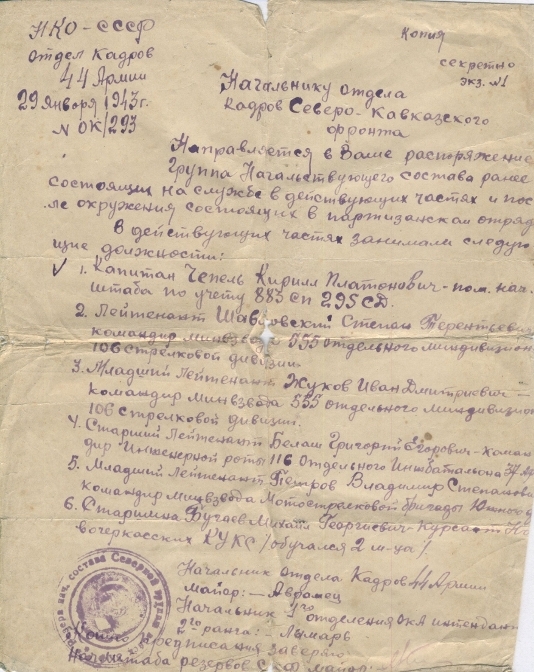 НКО-СССР
Отдел Кадров
44 Армии
29 января 1943 г.
N ОК/293
Копия
секретно
экз. №1
Начальнику отдела
кадров Северо-Кавказского
фронта
Направляется в Ваше распоряжение
группа Начальствующего состава ранее
состоящих на службе в действующих частях и пос-
ле окружения состоящих в партизанском отряд
В действующих частях занимали следую
щие должности:
√ 1. Капитан Чепель Кирилл Платонович - пом. нач.
штаба по учету 883 сп 295 СД.
2. Лейтенант Степан Терентьевич
командир минвзвода 555 отдельного миндивизион
106 стрелковой дивизии
3. Младший Лейтенант Жуков Иван Дмитриевич -
командир минвзвода 555 отдельного миндивизион
106 стрелковой дивизии.
4. Старший Лейтенант Белаш Григорий Егорович - коман
дир Инженерной роты 116 Отдельного Инжбатальона 37 Ар
5. Младший Лейтенант Петров Владимир Степанов
командир минвзвода Мотострелковой бригады Южного
6. Старшина Михаил Георгиевич - Курсант Но
вочеркасских КУКС /обучался 2 м-ца/
Начальник отдела Кадров 44 Армии
майор: - Аврамец
Начальник 1го отделения ОКА интендант
2го ранга: - Лымарь
Копию предписания заверяю
майор:
состава Северной группы